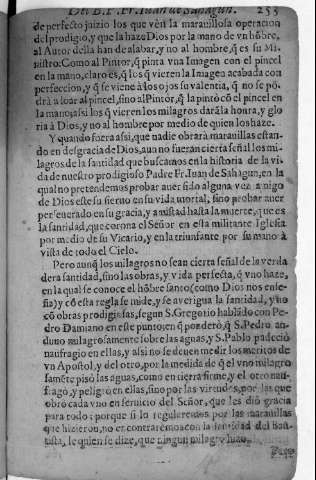 Del B. P. Fr. Iuan de Sahagun. 233
de perfecto juizio los que vén la marauillosa operacion
del prodigio, y que la haze Dios por la mano de vn hõbre,
al Autor della han de alabar, y no al hombre, q̃ es su Mi-
nistro: Como al Pintor, q̃ pinta vna Imagen con el pincel
en la mano, claro es, q̃ los q̃ vieren la Imagen acabada con
perfeccion, y q̃ se viene à los ojos su valentia, q̃ no se po-
drà a loar al pincel, sino al Pintor, q̃ la pintò cõ el pincel en
la mano; assi los q̃ vieren los milagros darã la honra, y glo-
ria à Dios, y no al hombre por medio de quien los haze.
Y quando fuera assi, que nadie obrarà marauillas estan-
do en desgracia de Dios, aun no fueran cierta señal los mi-
lagros de la santidad que buscamos en la historia de la vi-
da de nuestro prodigioso Padre Fr. Iuan de Sahagun, en la
qual no pretendemos probar auer sido alguna vez amigo
de Dios este su sieruo en su vida mortal, sino probar auer
perseuerado en su gracia, y amistad hasta la muerte, que es
la santidad, que corona el Señor en esta militante Iglesia
por medio de su Vicario, y en la triunfante por su mano à
vista de todo el Cielo.
Pero aunq̃ los milagros no sean cierta señal de la verda
dera santidad, sino las obras, y vida perfecta, q̃ vno haze,
en la qual se conoce el hõbre santo (como Dios nos ense-
ña) y cõ esta regla se mide, y se auerigua la santidad, y no
cõ obras prodigiosas, segun S. Gregorio hablãdo con Pe-
dro Damiano en este punto; en q̃ ponderò, q̃ S. Pedro an-
duuo milagrosamente sobre las aguas, y S. Pablo padeciò
naufragio en ellas, y assi no se deuen medir los meritos de
vn Apostol, y del otro, por la medida de q̃ el vno milagro
samẽte pisò las aguas, como en tierra firme, y el otro nau-
fragò, y peligrò en ellas, sino por las virtudes, por las que
obrò cada vno en seruicio del Señor, que les diò gracia
para todo; porque si lo reguleremos por las marauillas
que hizieron, no encontraremos con la santidad del Bau-
tista, de quien se dize, que ningun milagro hizo.